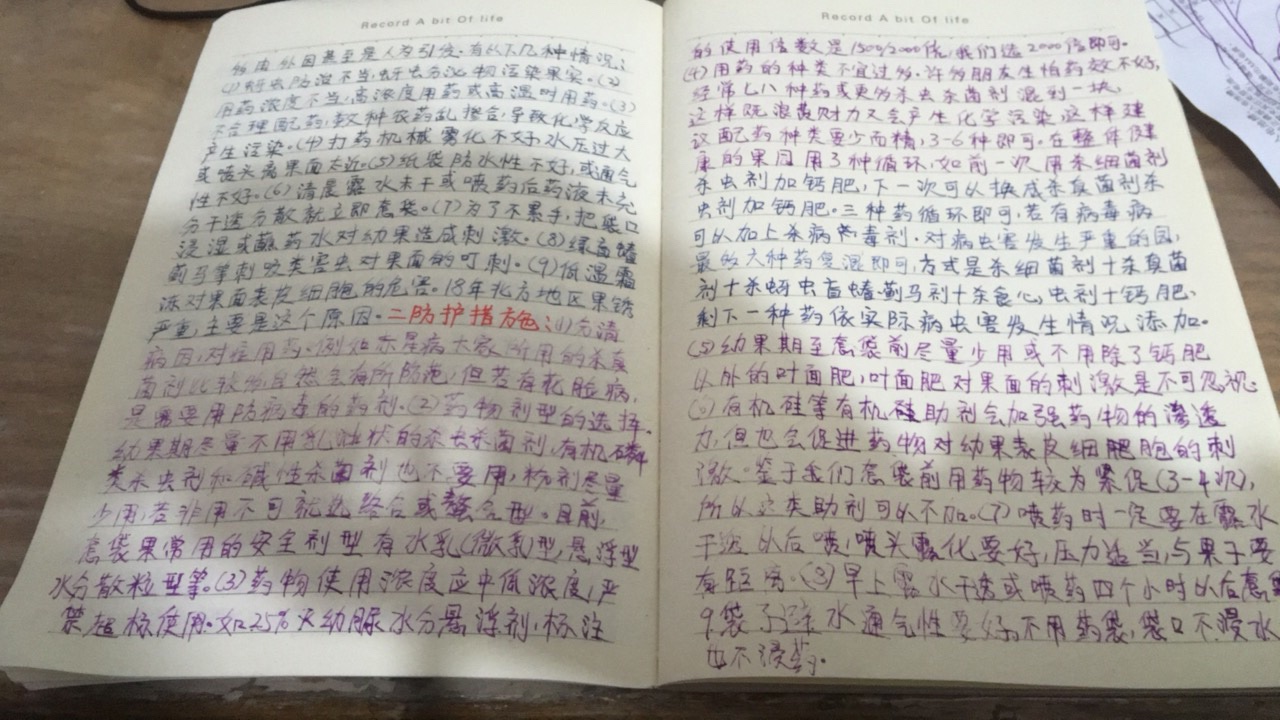 Record A bit Of life
的由外因甚至是人为引发。有以下几种情况:
(1)蚜虫防治不当,蚜虫分泌物污染果实。(2)
用药浓度不当,高浓度用药或高温时用药。(3)
不合理配药,数种农药乱掺合,导致化学反应
产生污染。(4)打药机械雾化不好,水压过大
或喷头离果面太近。(5)纸袋防水性不好,或通气
性不好。(6)清晨露水未干或喷药后药液未充
分干透分散就立即套袋。(7)为了不累手,把袋口
浸湿或蘸药水对幼果造成刺激。(8)绿盲蝽
蓟马等刺吸类害虫对果面的叮刺。(9)低温霜
冻对果面表皮细胞的危害。18年北方地区果锈
严重,主要是这个原因。二防护措施:(1)分清
病因,对症用药。例如示是病大家所用的杀真
菌剂比较多,自然会有所防范,但若有花脸病,
是需要用防病毒的药剂。(2)药物剂型的选择。
幼果期尽量不用乳油状的杀虫杀菌剂,有机磷
类杀虫剂和碱性杀菌剂也不要用,粉剂尽量
少用,若非用不可就选络合或螯合型。目前,
套袋果常用的安全剂型有水乳(微乳)型,悬浮型
水分散粒型等。(3)药物使用浓度应中低浓度,严
禁超标使用。如25%灭幼脲水分悬浮剂,标注
Record A bit Of life
的使用倍数是1500/2000倍,我们选2000倍即可。
(4)用药的种类不宜过多。许多朋友生怕药效不好,
经常七八种药或更多杀虫杀菌剂混到一块,
这样既浪费财力又会产生化学污染,这样建
议配药种类要少而精,3-6种即可。在整体健
康的果园用3种循环,如前一次用杀细菌剂
杀虫剂加钙肥,下一次可以换成杀真菌剂杀
虫剂加钙肥。三种药循环即可,若有病毒病
可以加上杀病毒剂。对病虫害发生严重的园,
最多六种药复混即可,方式是杀细菌剂+杀真菌
剂+杀蚜虫盲蝽蓟马剂+杀食心虫剂+钙肥,
剩下一种药依实际病虫害发生情况添加。
(5)幼果期至套袋前尽量少用或不用除了钙肥
以外的叶面肥,叶面肥对果面的刺激是不可忽视。
(6)有机硅等有机硅助剂会加强药物的渗透
力,但也会促进药物对幼果表皮细胞的刺
激。鉴于我们套袋前用药物较为紧促(3-4次),
所以这类助剂可以不加。(7)喷药时一定要在露水
干透以后喷,喷头雾化要好,压力适当,与果子要
有距离。(8)早上露水干透或喷药四个小时以后套袋
9,袋子避水通气性要好,不用药袋,袋口不浸水
也不浸药。